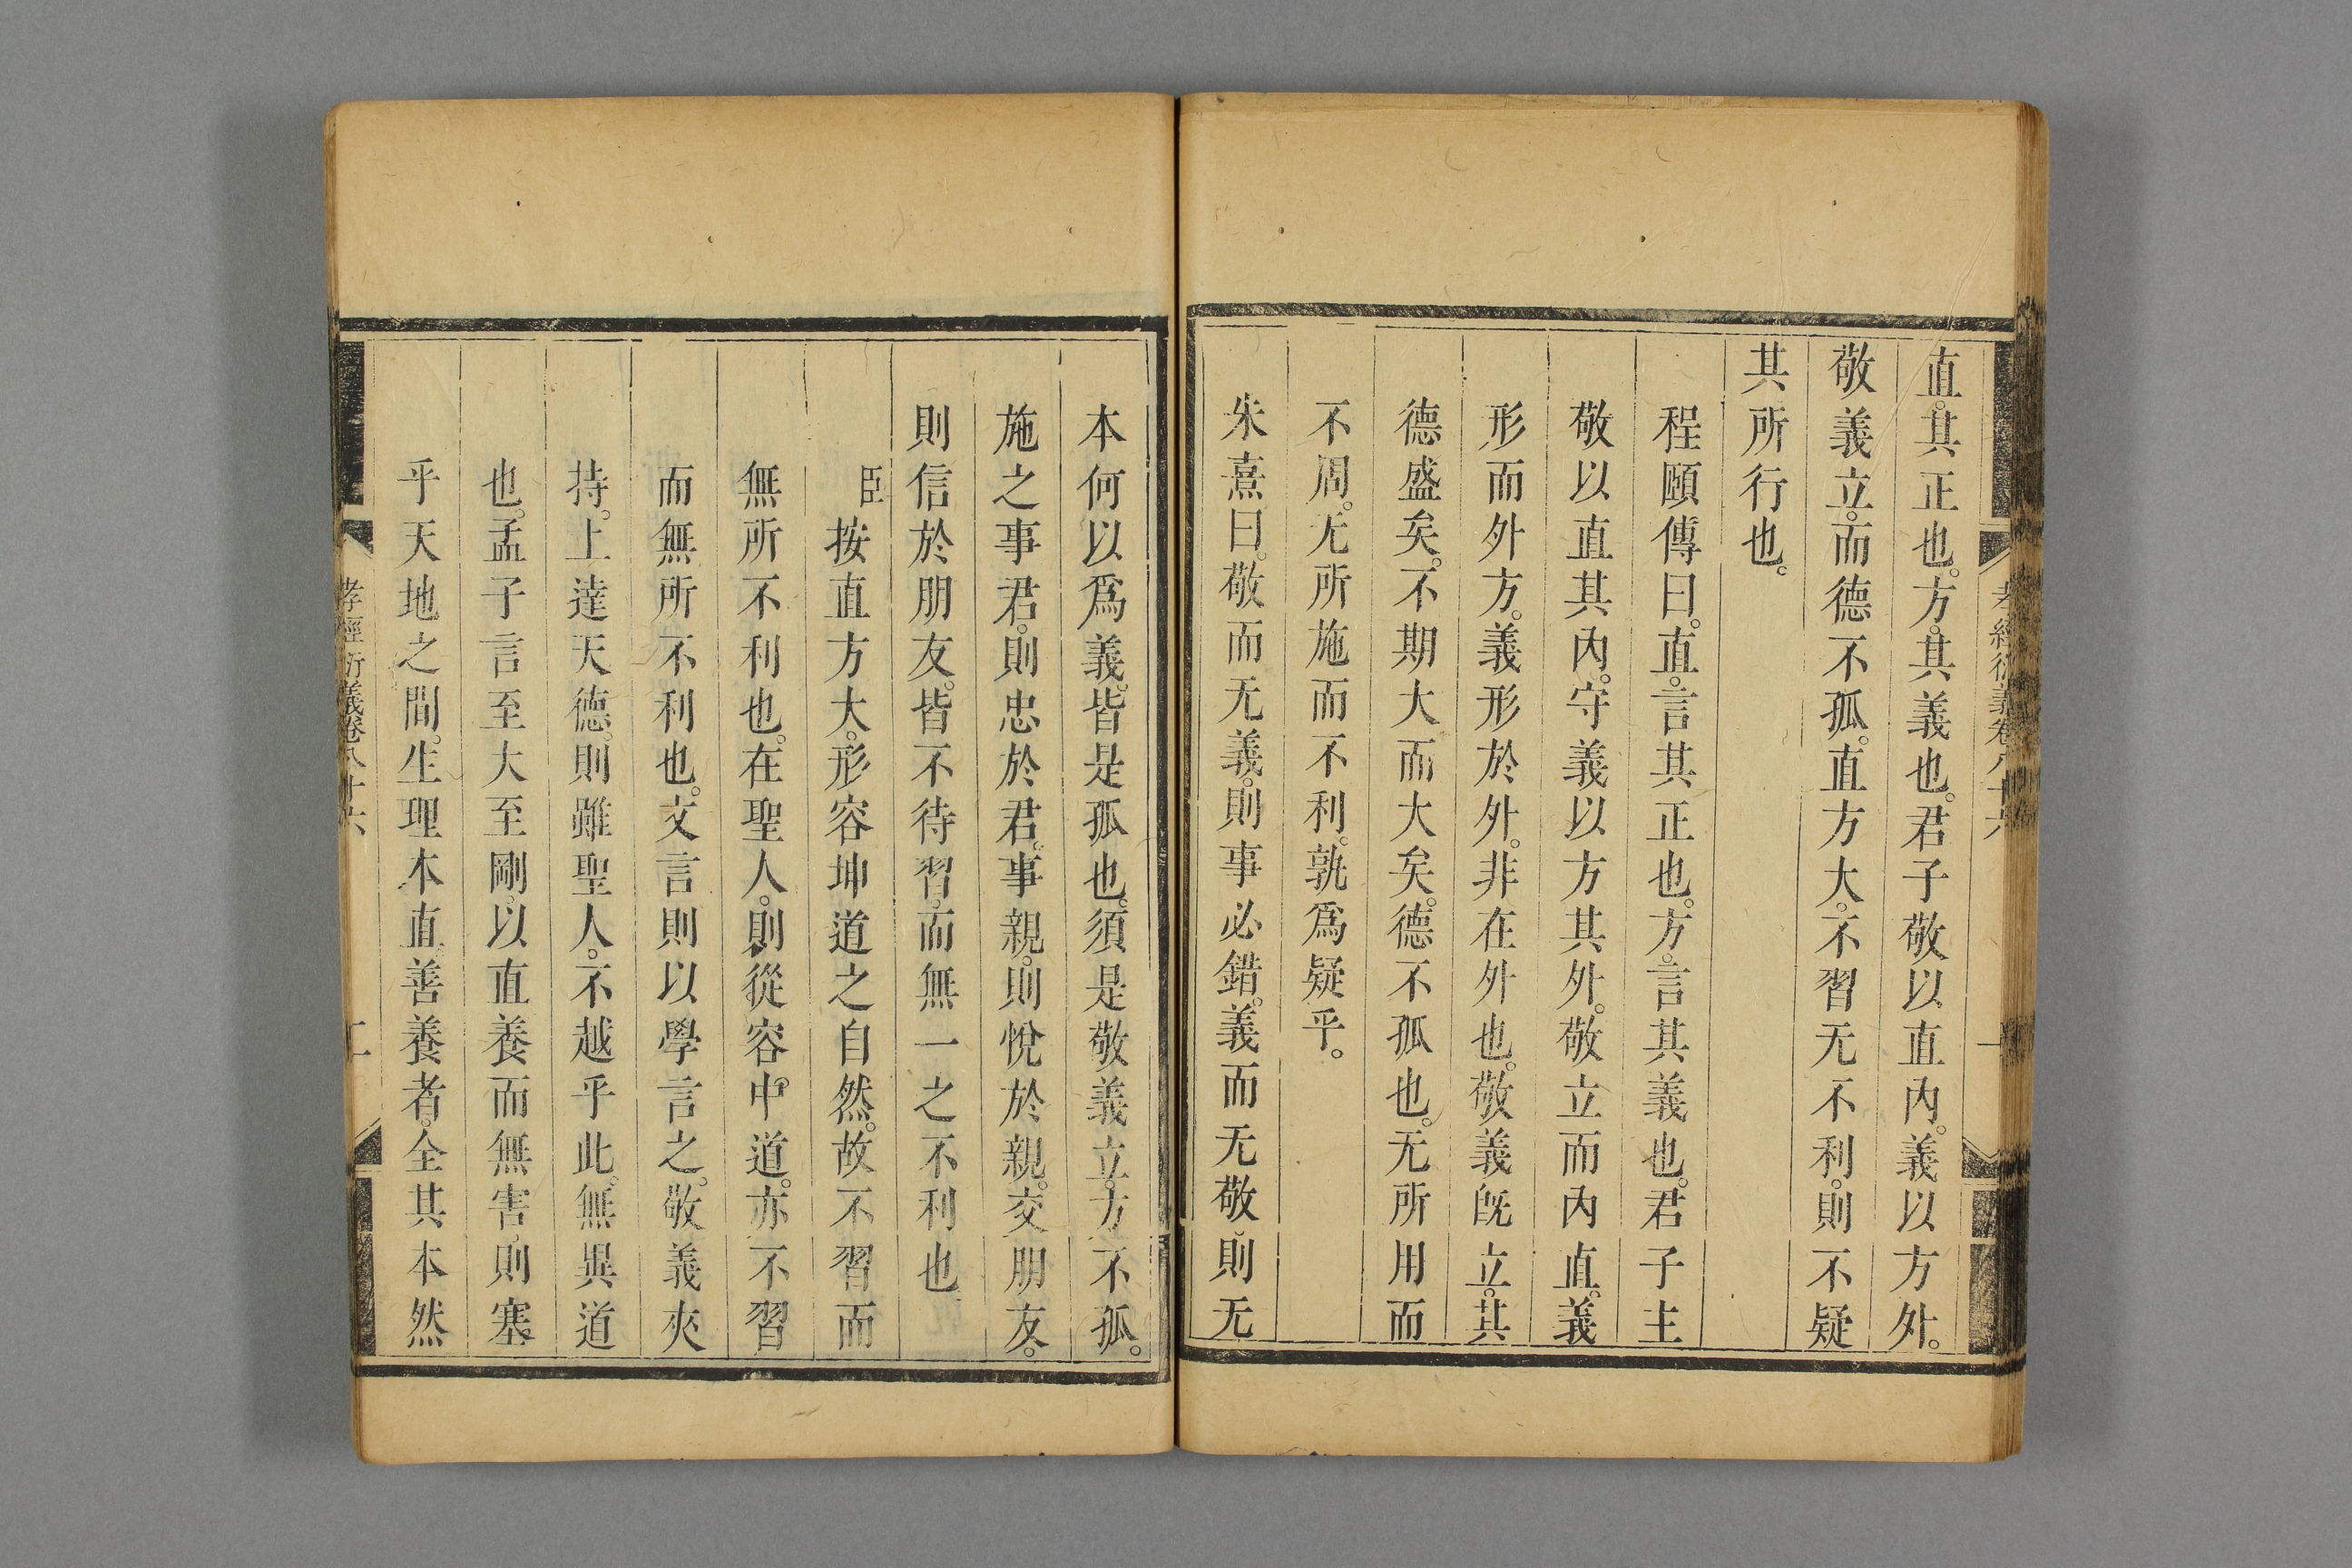 直。其正也。方。其義也。君子敬以直內。義以方外。
敬義立。而德不孤。直方大。不習无不利。則不疑
其所行也。
程頤傳曰。直。言其正也。方。言其義也。君子主
敬以直其內。守義以方其外。敬立而內直。義
形而外方。義形於外。非在外也。敬義旣立。其
德盛矣。不期大而大矣。德不孤也。无所用而
不周。无所施而不利。孰爲疑乎。
朱熹曰。敬而无義。則事必錯。義而无敬。則无
本何以爲義。皆是孤也。須是敬義立。方不孤。
施之事君。則忠於君。事親。則悅於親。交朋友。
則信於朋友。皆不待習。而無一之不利也
臣按直方大。形容坤道之自然。故不習而
無所不利也。在聖人。則從容中道。亦不習
而無所不利也。文言則以學言之。敬義夾
持。上達天德。則雖聖人。不越乎此。無異道
也。孟子言至大至剛。以直養而無害。則塞
乎天地之間。生理本直。善養者。全其本然
孝經衍義卷八十六